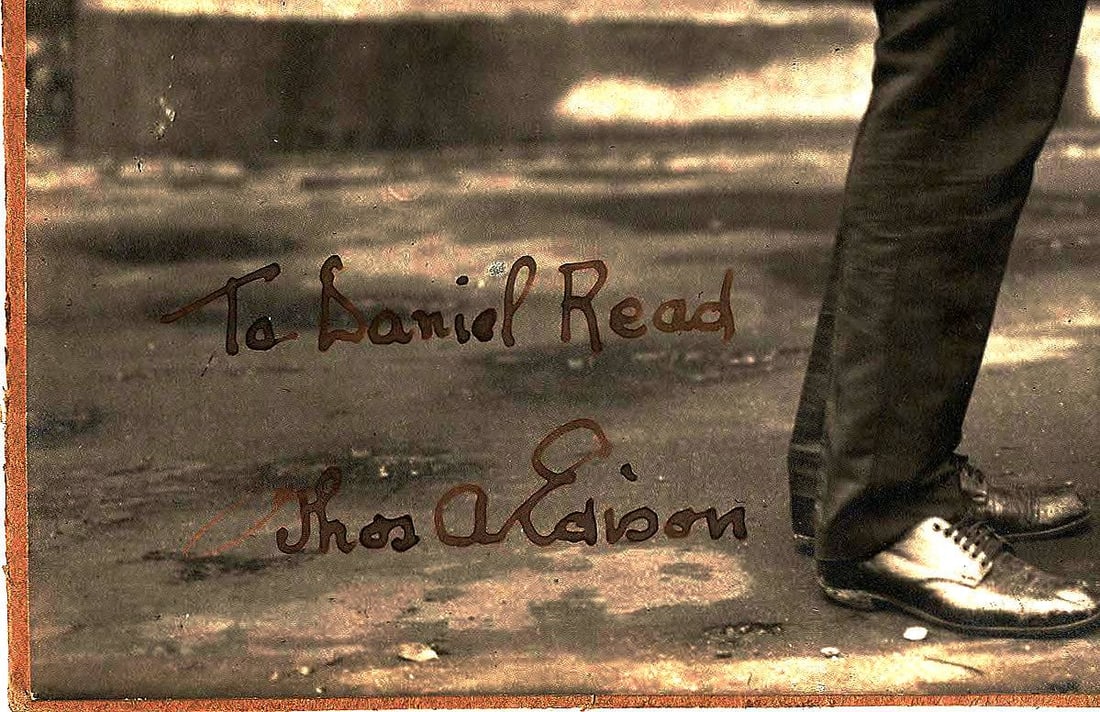 To Daniel Read
Thos A Edison